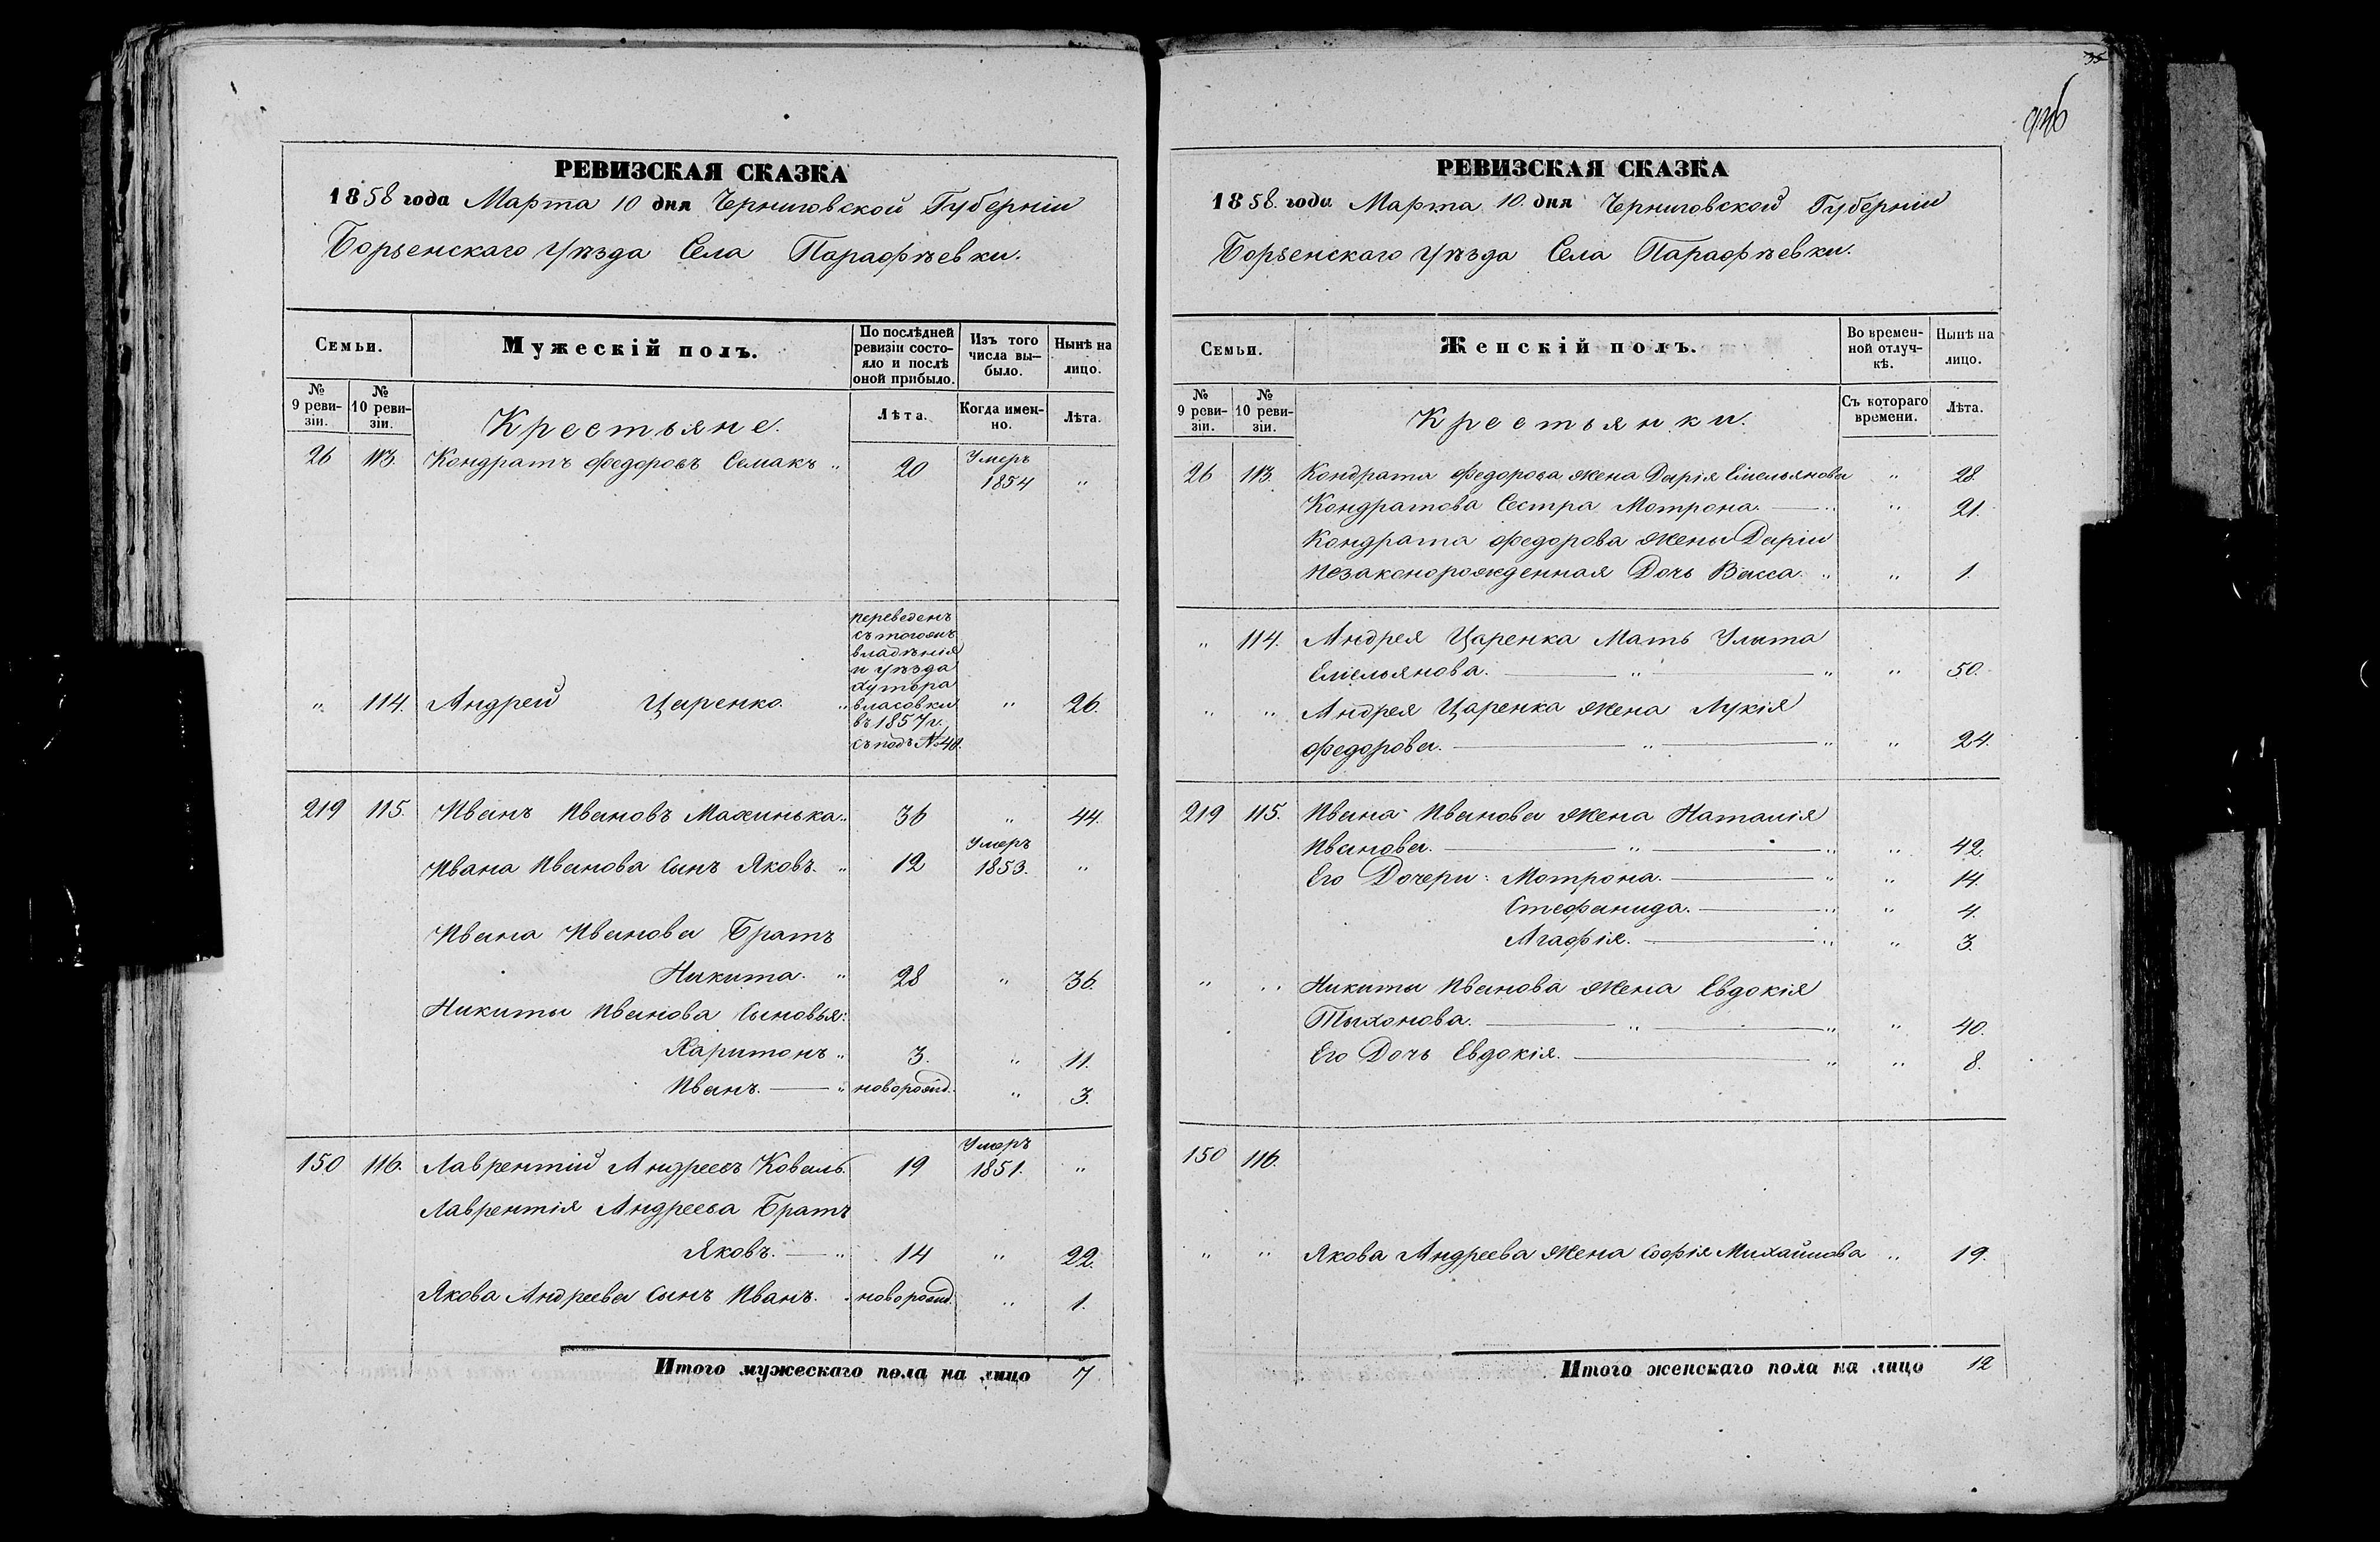 РЕВИЗСКАЯ СКАЗКА
1858 года Марта 10 дня Черниговской Губерніи
Борзенскаго Уѣзда Села Парафѣевки.
Семьи.
Мужескій полъ.
По послѣдней ревизіи состояло и послѣ оной прибыло.
Изъ того числа выбыло.
Нынѣ на лицо.
№ 9 ревизіи.
№ 10 ревизіи.
Крестьяне.
Лѣта.
Когда именно.
Лѣта.
26 113. Кондратъ Федоровъ Семакъ " 20 Умеръ 1854 "
переведенъ
съ тогоже
владѣнія
и уѣзда
хутора
Власовки
въ 1857 г.
съ подъ № 40.
" 114. Андрей Царенко. " " 26.
219 115. Иванъ Ивановъ Махинька " 36 " 44.
Ивана Иванова Сынъ Яковъ. " 12 Умеръ 1853. "
Ивана Иванова Братъ
Никита. " 28 " 36.
Никиты Иванова Сыновья:
Харитонъ " 3. " 11.
Иванъ. — " новорожд. " 3.
150 116. Лаврентій Андреевъ Коваль. 19 Умеръ 1851. "
Лаврентія Андреева Братъ
Яковъ. — " 14 " 22.
Якова Андреева Сынъ Иванъ. новорожд. " 1.
Итого мужескаго пола на лицо 7
35
РЕВИЗСКАЯ СКАЗКА
1858. года Марта 10. дня Черниговской Губерніи
Борзенскаго Уѣзда Села Парафѣевки.
Семьи.
Женскій полъ.
Во временной отлучкѣ.
Нынѣ на лицо.
№ 9 ревизіи.
№ 10 ревизіи.
Крестьянки.
Съ котораго времени.
Лѣта.
26 113. Кондрата Федорова жена Дарія Емельянова " 28.
Кондратова Сестра Мотрона. — " " 21.
Кондрата Федорова жены Даріи
Незаконорожденная Дочь Васса. " " 1.
" 114. Андрея Царенка Мать Улита
Емельянова. — " — " " 50.
" " Андрея Царенка жена Лукія
Федорова. — " — " " 24.
219 115. Ивана Иванова жена Наталія
Иванова. — " — " " 42.
Его Дочери: Мотрона. — " " 14.
Стефанида. — " " 4.
Агафія. — " " 3.
" " Никиты Иванова жена Евдокія
Тихонова. — " — " " 40.
Его Дочь Евдокія. — " " 8.
150 116.
" " Якова Андреева жена Софія Михайлова " 19.
Итого женскаго пола на лицо 12